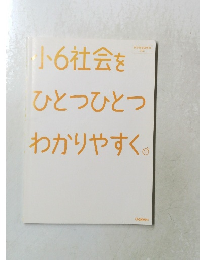 小6社会を
ひとつひとつ
わかりやすく。